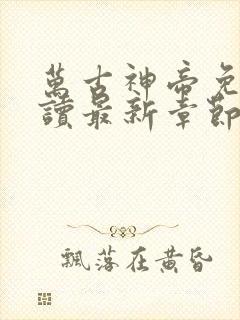 萬古神帝免
讀最新章節
飄落在黃昏